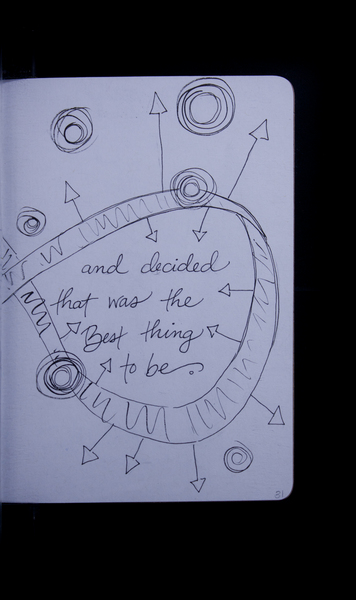 and decided
that was the
Best thing
to be.
81